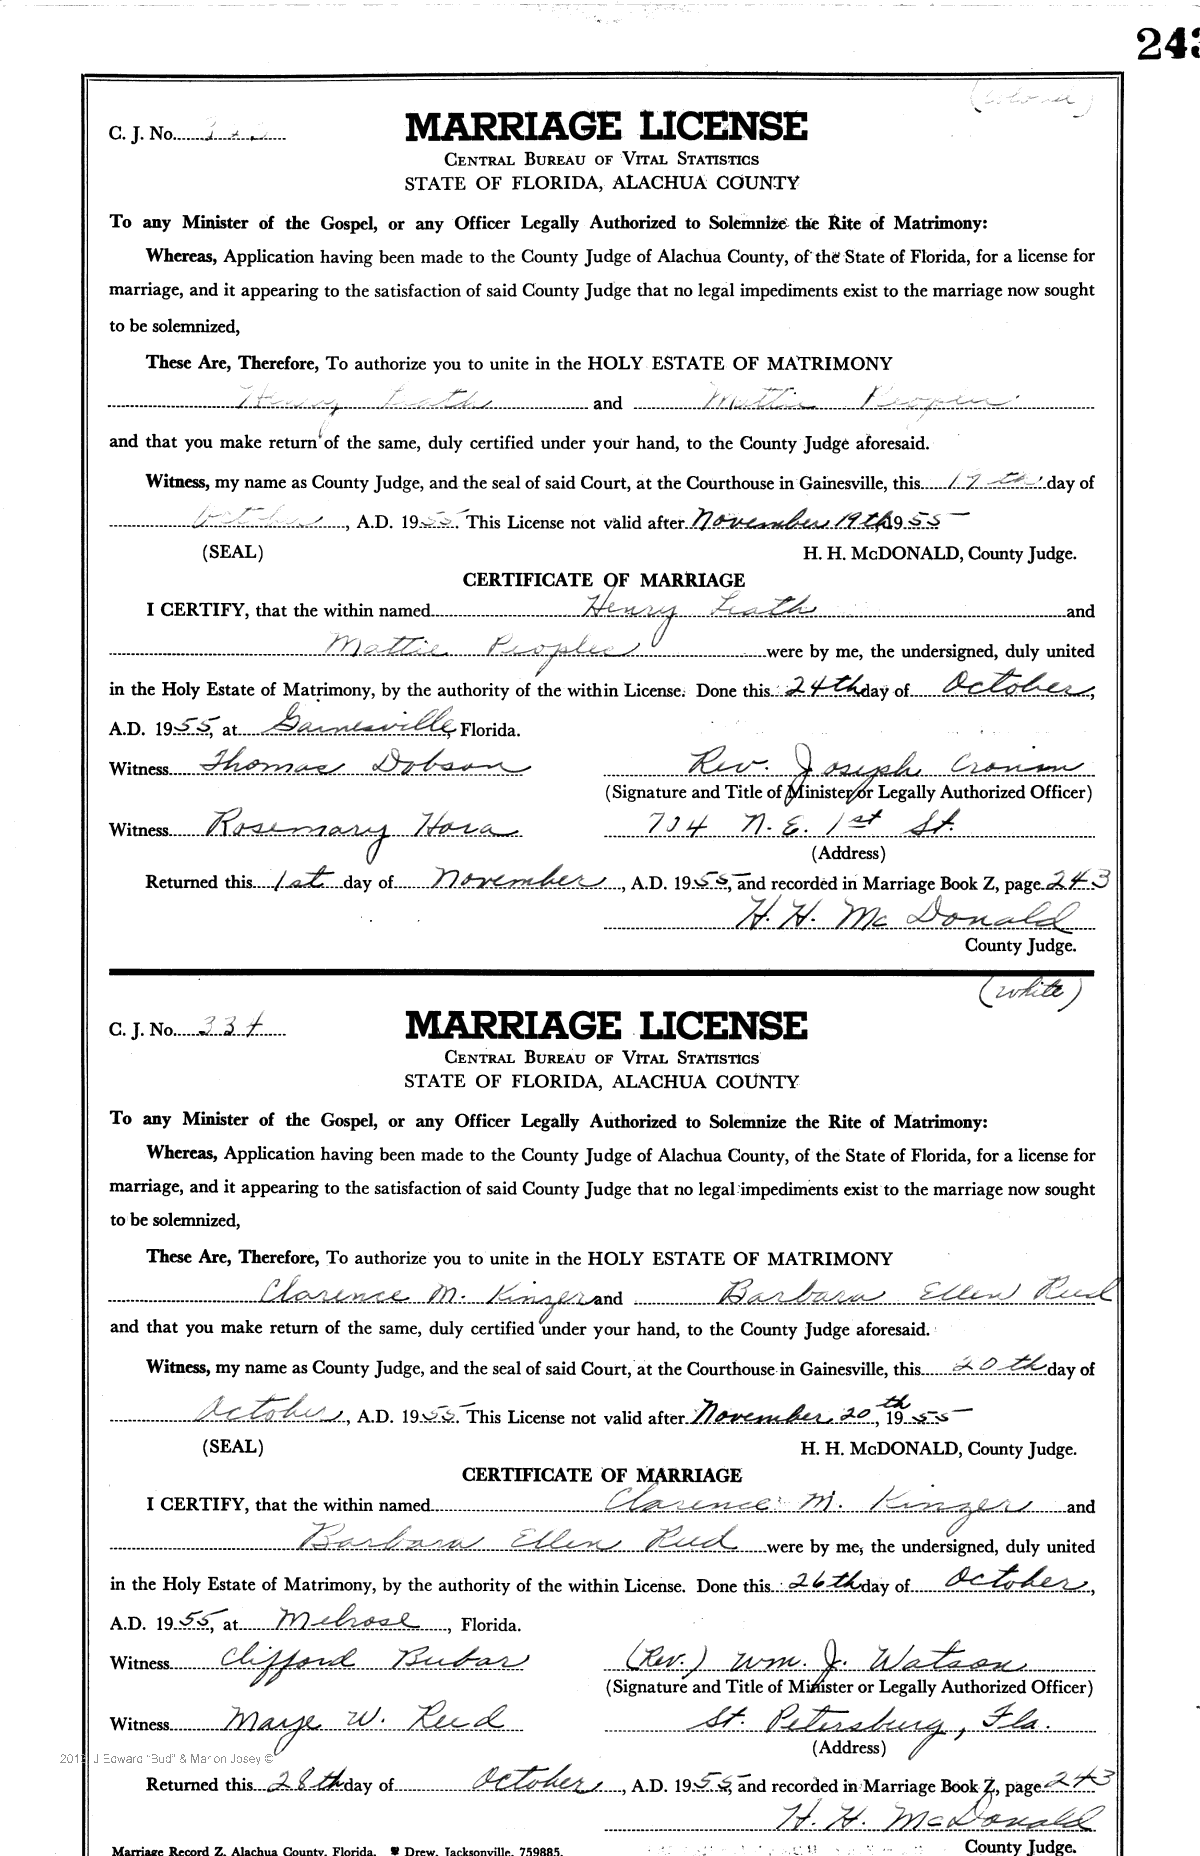 243
(Colored)
C. J. No. 333
MARRIAGE LICENSE
CENTRAL BUREAU OF VITAL STATISTICS
STATE OF FLORIDA, ALACHUA COUNTY
To any Minister of the Gospel, or any Officer Legally Authorized to Solemnize the Rite of Matrimony:
Whereas, Application having been made to the County Judge of Alachua County, of the State of Florida, for a license for
marriage, and it appearing to the satisfaction of said County Judge that no legal impediments exist to the marriage now sought
to be solemnized,
These Are, Therefore, To authorize you to unite in the HOLY ESTATE OF MATRIMONY
Henry Leath and Mattie Peoples
and that you make return of the same, duly certified under your hand, to the County Judge aforesaid.
Witness, my name as County Judge, and the seal of said Court, at the Courthouse in Gainesville, this 19th day of
October, A.D. 1955. This License not valid after November 19th, 1955
(SEAL) H. H. McDONALD, County Judge.
CERTIFICATE OF MARRIAGE
I CERTIFY, that the within named Henry Leath and
Mattie Peoples were by me, the undersigned, duly united
in the Holy Estate of Matrimony, by the authority of the within License. Done this 24th day of October,
A.D. 1955, at Gainesville, Florida.
Witness Thomas Dobson Rev. Joseph Cronin
(Signature and Title of Minister or Legally Authorized Officer)
Witness Rosemary Hora 704 N. E. 1st St.
(Address)
Returned this 1st day of November, A.D. 1955, and recorded in Marriage Book Z, page 243
H. H. McDonald
County Judge.
(white)
C. J. No. 334
MARRIAGE LICENSE
CENTRAL BUREAU OF VITAL STATISTICS
STATE OF FLORIDA, ALACHUA COUNTY
To any Minister of the Gospel, or any Officer Legally Authorized to Solemnize the Rite of Matrimony:
Whereas, Application having been made to the County Judge of Alachua County, of the State of Florida, for a license for
marriage, and it appearing to the satisfaction of said County Judge that no legal impediments exist to the marriage now sought
to be solemnized,
These Are, Therefore, To authorize you to unite in the HOLY ESTATE OF MATRIMONY
Clarence M. Kinzer and Barbara Ellen Reed
and that you make return of the same, duly certified under your hand, to the County Judge aforesaid.
Witness, my name as County Judge, and the seal of said Court, at the Courthouse in Gainesville, this 20th day of
October, A.D. 1955. This License not valid after November 20th, 1955
(SEAL) H. H. McDONALD, County Judge.
CERTIFICATE OF MARRIAGE
I CERTIFY, that the within named Clarence M. Kinzer and
Barbara Ellen Reed were by me, the undersigned, duly united
in the Holy Estate of Matrimony, by the authority of the within License. Done this 26th day of October,
A.D. 1955, at Melrose, Florida.
Witness Clifford Bubar (Rev.) Wm. J. Watson
(Signature and Title of Minister or Legally Authorized Officer)
Witness Marye W. Reed St. Petersburg, Fla.
(Address)
J Edward "Bud" & Marion Josey ©
Returned this 28th day of October, A.D. 1955, and recorded in Marriage Book Z, page 243
H. H. McDonald
County Judge.
Marriage Record Z, Alachua County, Florida. Drew, Jacksonville, 759885.